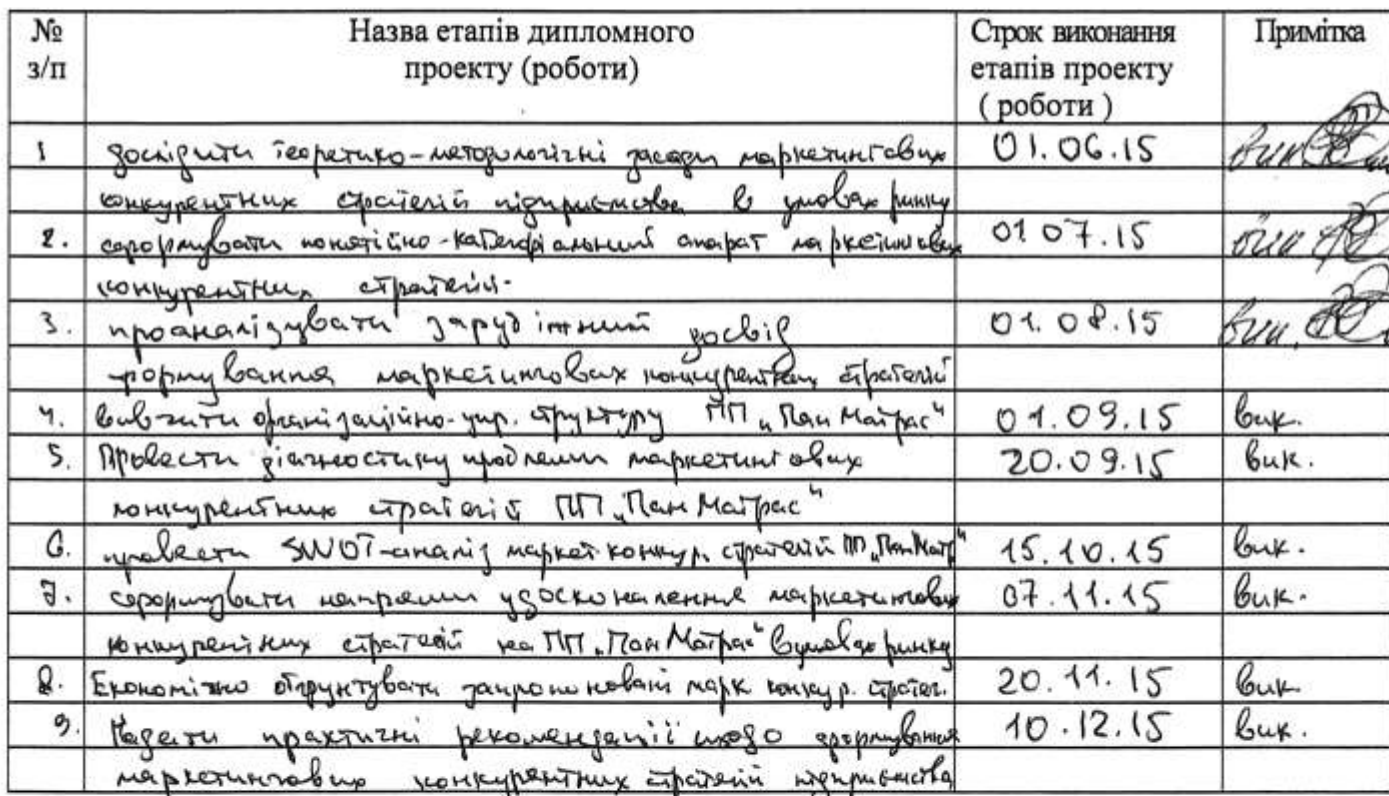 № з/п Назва етапів дипломного проекту (роботи) Строк виконання етапів проекту ( роботи ) Примітка
1 дослідити теоретико-методологічні засади маркетингових 01.06.15 вик.
конкурентних стратегій підприємства в умовах ринку
2. сформувати понятійно-категоріальний апарат маркетингових 01.07.15 вик
конкурентних стратегій.
3. проаналізувати зарубіжний досвід 01.08.15 вик.
формування маркетингових конкурентних стратегій
4. вивчити організаційно-упр. структуру ПП „Пан Матрас“ 01.09.15 вик.
5. Провести діагностику проблеми маркетингових 20.09.15 вик.
конкурентних стратегій ПП „Пан Матрас“
6. провести SWOT-аналіз маркет конкур. стратегій ПП „Пан Матр“ 15.10.15 вик.
7. сформувати напрями удосконалення маркетингових 07.11.15 вик.
конкурентних стратегій на ПП „Пан Матрас“ в умовах ринку
8. Економічно обгрунтувати запропоновані марк конкур. стратег. 20.11.15 вик.
9. Надати практичні рекомендації щодо формування 10.12.15 вик.
маркетингових конкурентних стратегій підприємства